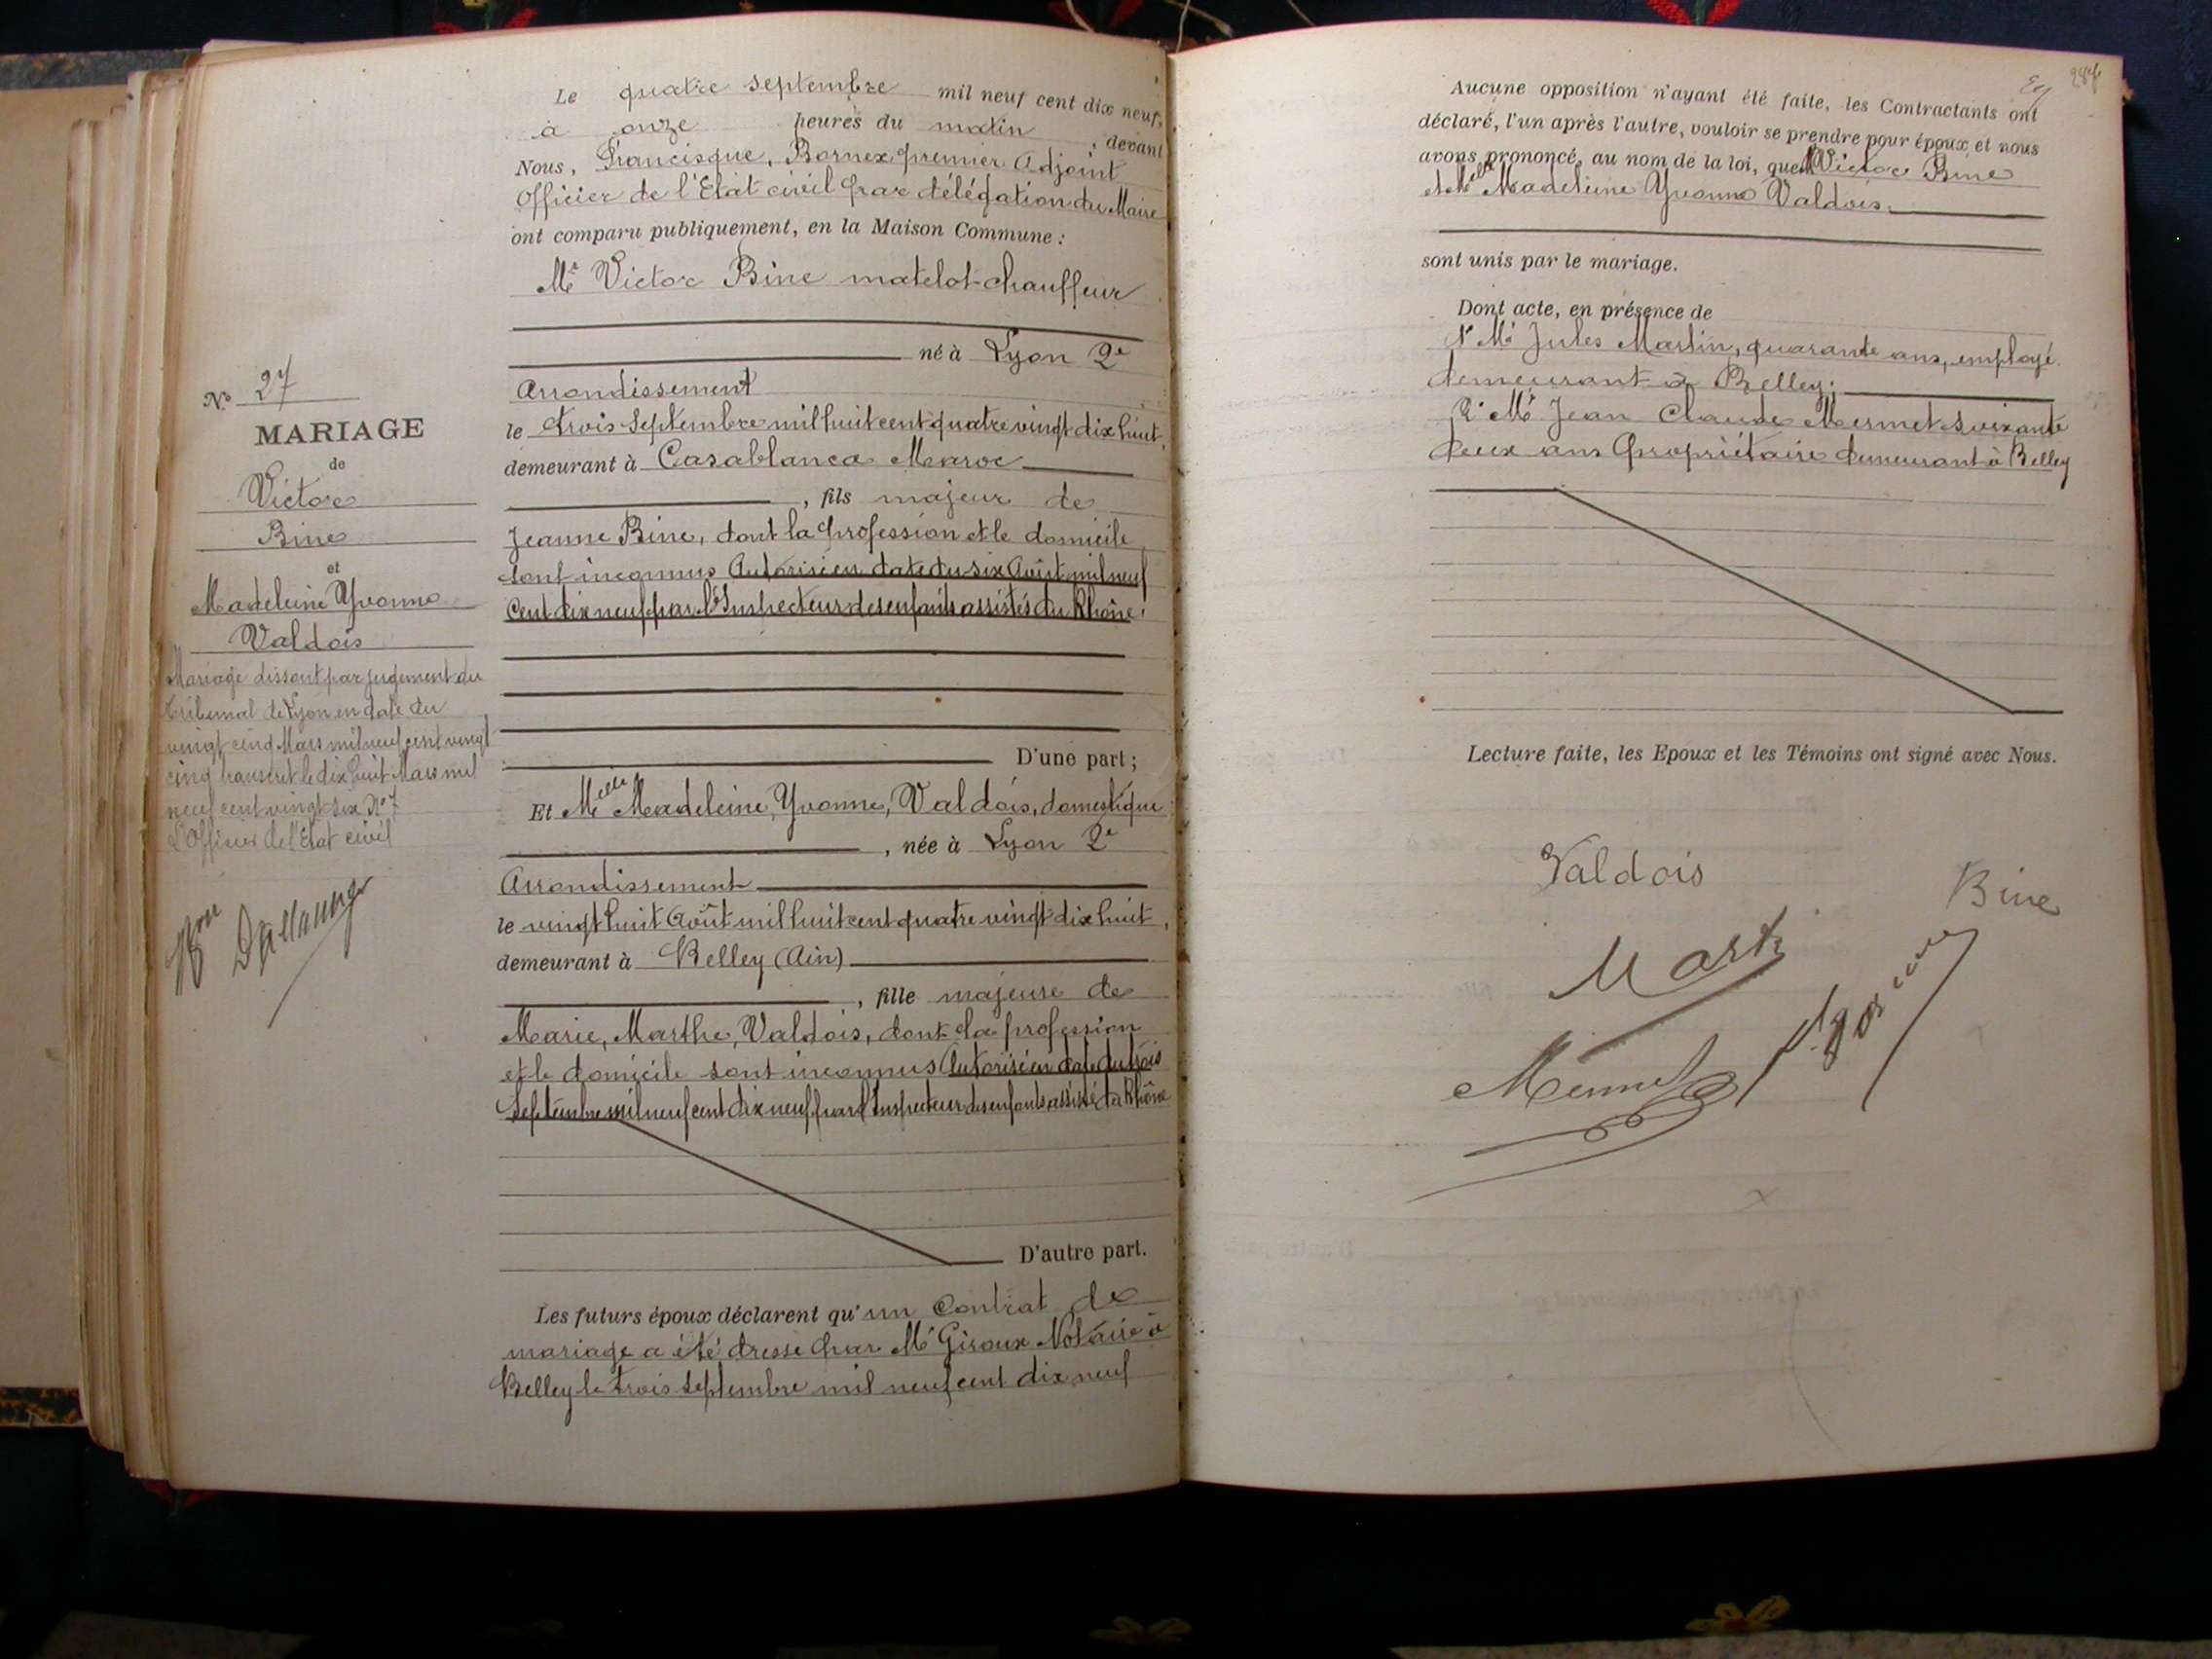 N° 27
MARIAGE
de
Victor
Bine
et
Madeleine Yvonne
Valdois
Mariage dissout par jugement du
tribunal de Lyon en date du
vingt cinq Mars mil neuf cent vingt
cinq transcrit le dix huit Mars mil
neuf cent vingt-six N° 7
L'Officier de l'Etat civil
Le quatre septembre mil neuf cent dix neuf,
à onze heures du matin, devant
Nous, Francisque, Bornex premier Adjoint
Officier de l'Etat civil par délégation du Maire
ont comparu publiquement, en la Maison Commune :
Mr Victor Bine matelot-chauffeur
né à Lyon 2e
Arrondissement
le trois Septembre mil huit cent quatre vingt dix huit,
demeurant à Casablanca Maroc
, fils majeur de
Jeanne Bine, dont la profession et le domicile
sont inconnus Autorisé en date du six Août mil neuf
Cent dix neuf par l'Inspecteur des enfants assistés du Rhône.
D'une part ;
Et Melle Madeleine, Yvonne, Valdois, domestique
, née à Lyon 2e
Arrondissement
le vingt huit Août mil huit cent quatre vingt dix huit,
demeurant à Belley (Ain)
, fille majeure de
Marie, Marthe, Valdois, dont la profession
et le domicile sont inconnus Autorisé en date du trois
Septembre mil neuf cent dix neuf par l'Inspecteur des enfants assistés du Rhône
D'autre part.
Les futurs époux déclarent qu'un Contrat de
mariage a été dressé par Me Giroux Notaire à
Belley le trois Septembre mil neuf cent dix neuf
287
Aucune opposition n'ayant été faite, les Contractants ont
déclaré, l'un après l'autre, vouloir se prendre pour époux et nous
avons prononcé, au nom de la loi, que Mr Victor Bine
et Melle Madeleine Yvonne Valdois.
sont unis par le mariage.
Dont acte, en présence de
1° Mr Jules Martin, quarante ans, employé
demeurant à Belley ;
2° Mr Jean Claude Mermet Soixante
deux ans Propriétaire demeurant à Belley
Lecture faite, les Epoux et les Témoins ont signé avec Nous.
Valdois
Bine
Martin
Mermet